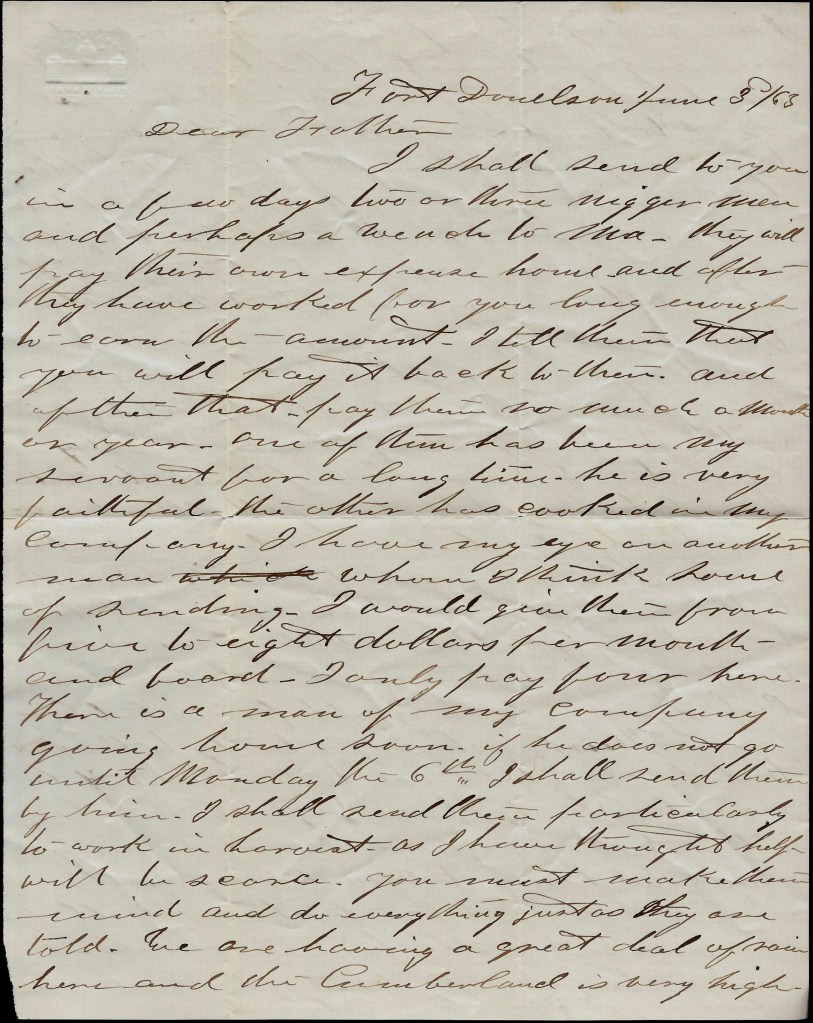 Fort Donelson June 3d/63
Dear Father
I shall send to you
in a few days two or three nigger men
and perhaps a wench to Ma - they will
pay their own expense home and after
they have worked for you long enough
to earn the amount - I tell them that
you will pay it back to them. and
after that - pay them so much a month
or year - one of them has been my
servant for a long time - he is very
faithful - the other has cooked in my
Company - I have my eye on another
man which whom I think some
of sending - I would give them from
five to eight dollars per month -
and board - I only pay four here.
There is a man of my company
going home soon. if he does not go
until Monday the 6th I shall send them
by him - I shall send them particularly
to work in harvest - as I have thought help
will be scarce. you must make them
mind and do everything just as they are
told. We are having a great deal of rain
here and the Cumberland is very high -